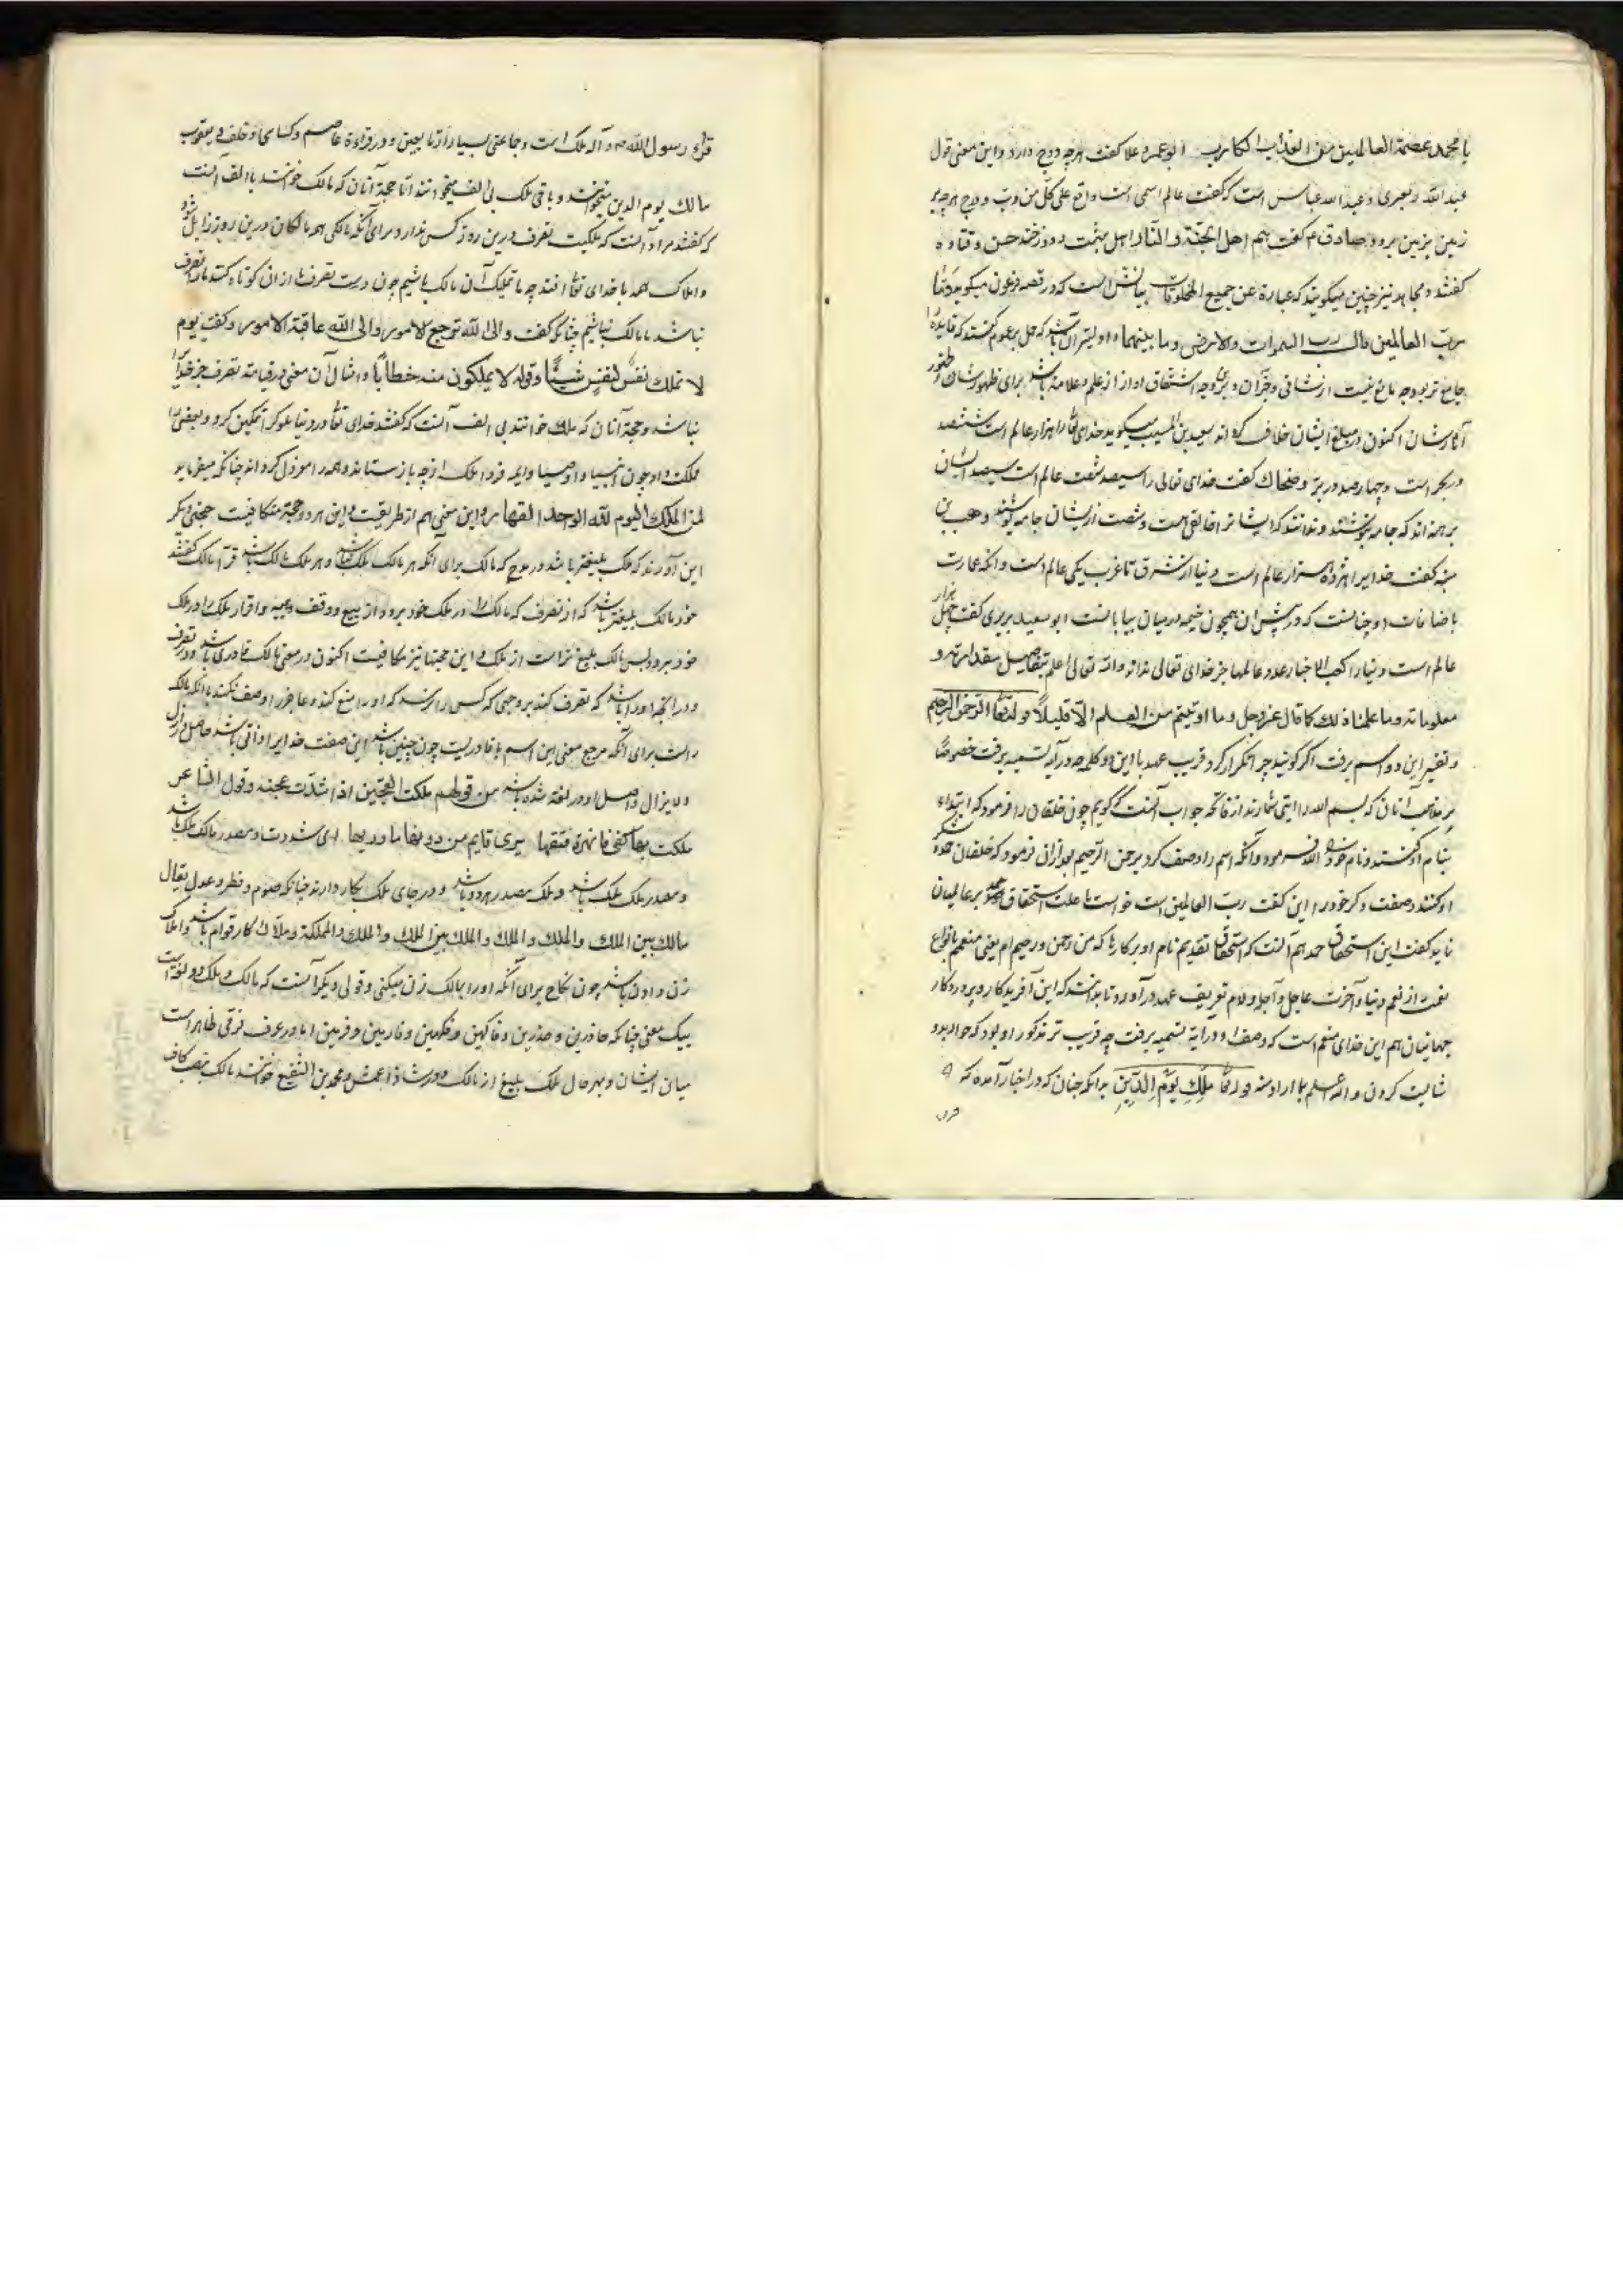 یا محمد عصمة العالمین من العذاب الکارب ابوعمرو علا گفت هرچه روح دارد و این معنی قول
عبدالله زبعری و عبدالله عباس است که گفت عالم اسمی است واقع علی کل من دب و درج هرچه بر
زمین بزمین برود صادق ع گفت هم اهل الجنة و النار اهل بهشت و دوزخند حسن و قتاده
گفتند و مجاهد نیز چنین میگویند که عبارة عن جمیع المخلوقات بیانش آنست که در قصه فرعون میگوید و ما
رب العالمین قال رب السموات والارض وما بینهما و اولیتر آن باشد که حمل بر عموم کنند که فایده را
جامع تر بود
آثارشان اکنون در مبلغ ایشان خلاف کرده اند سعید بن المسیب میگوید خدای تعالی را هزار عالم است ششصد
در بحر است و چهارصد در بر و ضحاک گفت خدای تعالی را سیصد شصت عالم است سیصد ایشان
برهنه اند که جامه نپوشند و ندانند که ایشانرا خالقی هست و شصت از ایشان جامه پوشند وهب بن
منبه گفت خدایرا هژده هزار عالم است دنیا از شرق تا غرب یکی عالم است و آنکه عمارت
با ضافات او چنانست که در پیش آن همچون خیمه در میان بیابانست ابوسعید بربری گفت چهل هزار
عالم است و دنیا را کعب الاخبار عدد عالمها جز خدای تعالی نداند والله تعالی اعلم بتفاصیل مقدراته و
معلوماته وما علمنا ذلک کما قال عز وجل وما اوتیتم من العلم الا قلیلا قوله تعالی الرحمن الرحیم
و تفسیر این دو اسم برفت اگر گویند چرا تکرار کرد و قریب عهد با این دو کلمه در آیه تسمیه برفت خصوصا
بر مذهب آنان که بسم الله را آیتی شمارند از فاتحه جواب آنست که گویم چون خلقان را فرمود که ابتداء
بنام او کنند و نام خود الله فرمود و آنگه اسم را وصف کرد برحمن الرحیم بعد از آن فرمود که خلقان حمد و شکر
او کنند و صفت دگر خود را این گفت رب العالمین است خواست تا علت استحقاق حمد بر عالمیان
نماید گفت این استحقاق حمد هم آنست که استحقاق تقدیم نام او بر کارها که من رحمن و رحیم ام یعنی منعمم بانواع
نعمت از نعم دنیا و آخرت عاجل و آجل و لام تعریف عهد در آورد تا بدانند که این آفریدگار و پروردگار
جهانیان هم این خدای منعم است که وصف او در آیه تسمیه برفت چه قریب تر مذکور او بود که حواله بدو
شایست کردن والله اعلم بما اراد منه قوله تعالی مٰلِكِ يَوْمِ الدِّينِ بدانکه چنان که در اخبار آمده که
قراء رسول الله ص و آله ملک است و جماعتی بسیار از تابعین و در قراءة عاصم و کسائی و خلف و یعقوب
مالك یوم الدین میخواندند و باقی ملک بی الف میخوانند اما حجة آنان که مالک خوانند با الف آنست
که گفتند مراد آنست که ملکیت تصرف درین روز کس ندارد برای آنکه مالکی همه مالکان درین روز زایل شود
و املاک همه با خدای تعالی افتد چه ما تملیک آن مالک باشیم چون دست تصرف ما از آن کوتاه کنند ما را تصرف
نباشد ما مالک نباشیم چنانکه گفت والی الله ترجع الامور والی الله عاقبة الامور و گفت یوم
لا تملك نفس لنفس شیئًا و قوله لا یملکون منه خطابًا و امثال آن معنی در قیامة تصرف جز خدا را
نباشد و حجة آنان که ملك خوانند بی الف آنست که گفتند خدای تعالی در دنیا ملوک را تمکین کرد و بعضی را
مملکت داد چون انبیا و اوصیا و ایمه فردا ملک از همه باز ستاند و همه را معزول گرداند چنانکه میفرماید
لمن الملک الیوم لله الواحد القهار و این معنی هم از طریقیت و این هر دو حجة متکافیت حجتی دیگر
این آوردند که ملک بلیغتر باشد در مدح که مالک برای آنکه هر مالک ملک نباشد و هر ملک مالک باشد قرآ مالک گفتند
خود مالک بلیغتر باشد که از تصرف که مالک را در ملک خود برود از بیع و وقف و هبه و اقرار ملک را در ملک
خود نبرود پس مالک بلیغ تر است از ملک و این حجتها نیز متکافیت اکنون در معنی مالک قادری باشد و در تصرف
و در آنچه او را باشد که تصرف کند بر وجهی که کس را نرسد که او را منع کند و عاجز را وصف نکنند بآنکه مالک
است برای آنکه مرجع معنی این اسم با قادریت چون چنین باشد این صفت خدایرا ذاتی باشد حاصل در ازل
و لایزال و اصل او در لغة شده باشد من قولهم ملکت العجین اذا شددت عجنه و قول الشاعر
ملکت بها کفی فانهرت فتقها یری قایم من دونها ما وراءها ای شددت و مصدر مالک ملک باشد
و مصدر ملک ملک باشد و ملک مصدر هر دو باشد و در جای ملک بکار دارند چنانکه صوم و فطر و عدل یقال
مالك بین الملك والملك والملك والملك بین الملك والملك والمملکة و ملاك کار قوام باشد و املاک
زن دادن باشد چون نکاح برای آنکه او را بمالک زن میکنی و قولی دیگر آنست که مالک و ملک دو لغة است
بیک معنی چنانکه حاذرین و حذرین و فاکهین و فکهین و فارهین و فرهین اما در عرف فرقی ظاهر است
میان ایشان و بهرحال ملک بلیغ از مالک و در شاذ اعمش و محمد بن السمیفع خوانند مالک بنصب کاف